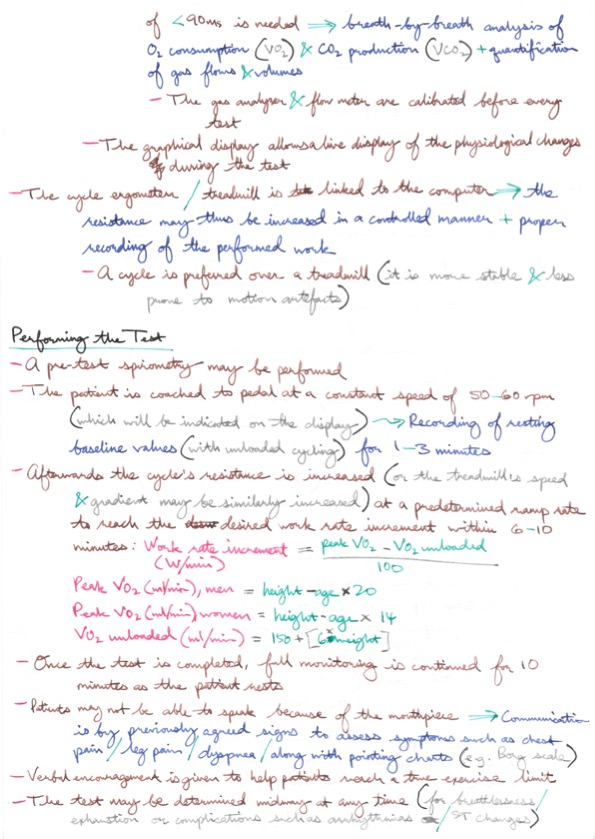 of <90ms is needed ⇒ breath-by-breath analysis of
O₂ consumption (VO₂) & CO₂ production (VCO₂) + quantification
of gas flows & volumes
- The gas analyser & flow meter are calibrated before every
test
- The graphical display allows a live display of the physiological changes
during the test
- The cycle ergometer / treadmill is linked to the computer → the
resistance may thus be increased in a controlled manner + proper
recording of the performed work
- A cycle is preferred over a treadmill (it is more stable & less
prone to motion artefacts)
Performing the Test
- A pre-test spirometry may be performed
- The patient is coached to pedal at a constant speed of 50-60 rpm
(which will be indicated on the display) → Recording of resting
baseline values (with unloaded cycling) for 1-3 minutes
- Afterwards the cycle's resistance is increased (or the treadmill's speed
& gradient may be similarly increased) at a predetermined ramp rate
to reach the desired work rate increment within 6-10
minutes: Work rate increment = peak VO₂ - VO₂ unloaded
(W/min) 100
Peak VO₂ (ml/min), men = height - age × 20
Peak VO₂ (ml/min) women = height - age × 14
VO₂ unloaded (ml/min) = 150 + [6 × weight]
- Once the test is completed, full monitoring is continued for 10
minutes as the patient rests
- Patients may not be able to speak because of the mouthpiece ⇒ Communication
is by previously agreed signs to assess symptoms such as chest
pain / leg pain / dyspnea / along with pointing charts (e.g. Borg scale)
- Verbal encouragement is given to help patients reach a true exercise limit
- The test may be determined midway at any time (for breathlessness /
exhaustion or complications such as arrhythmias / ST changes)